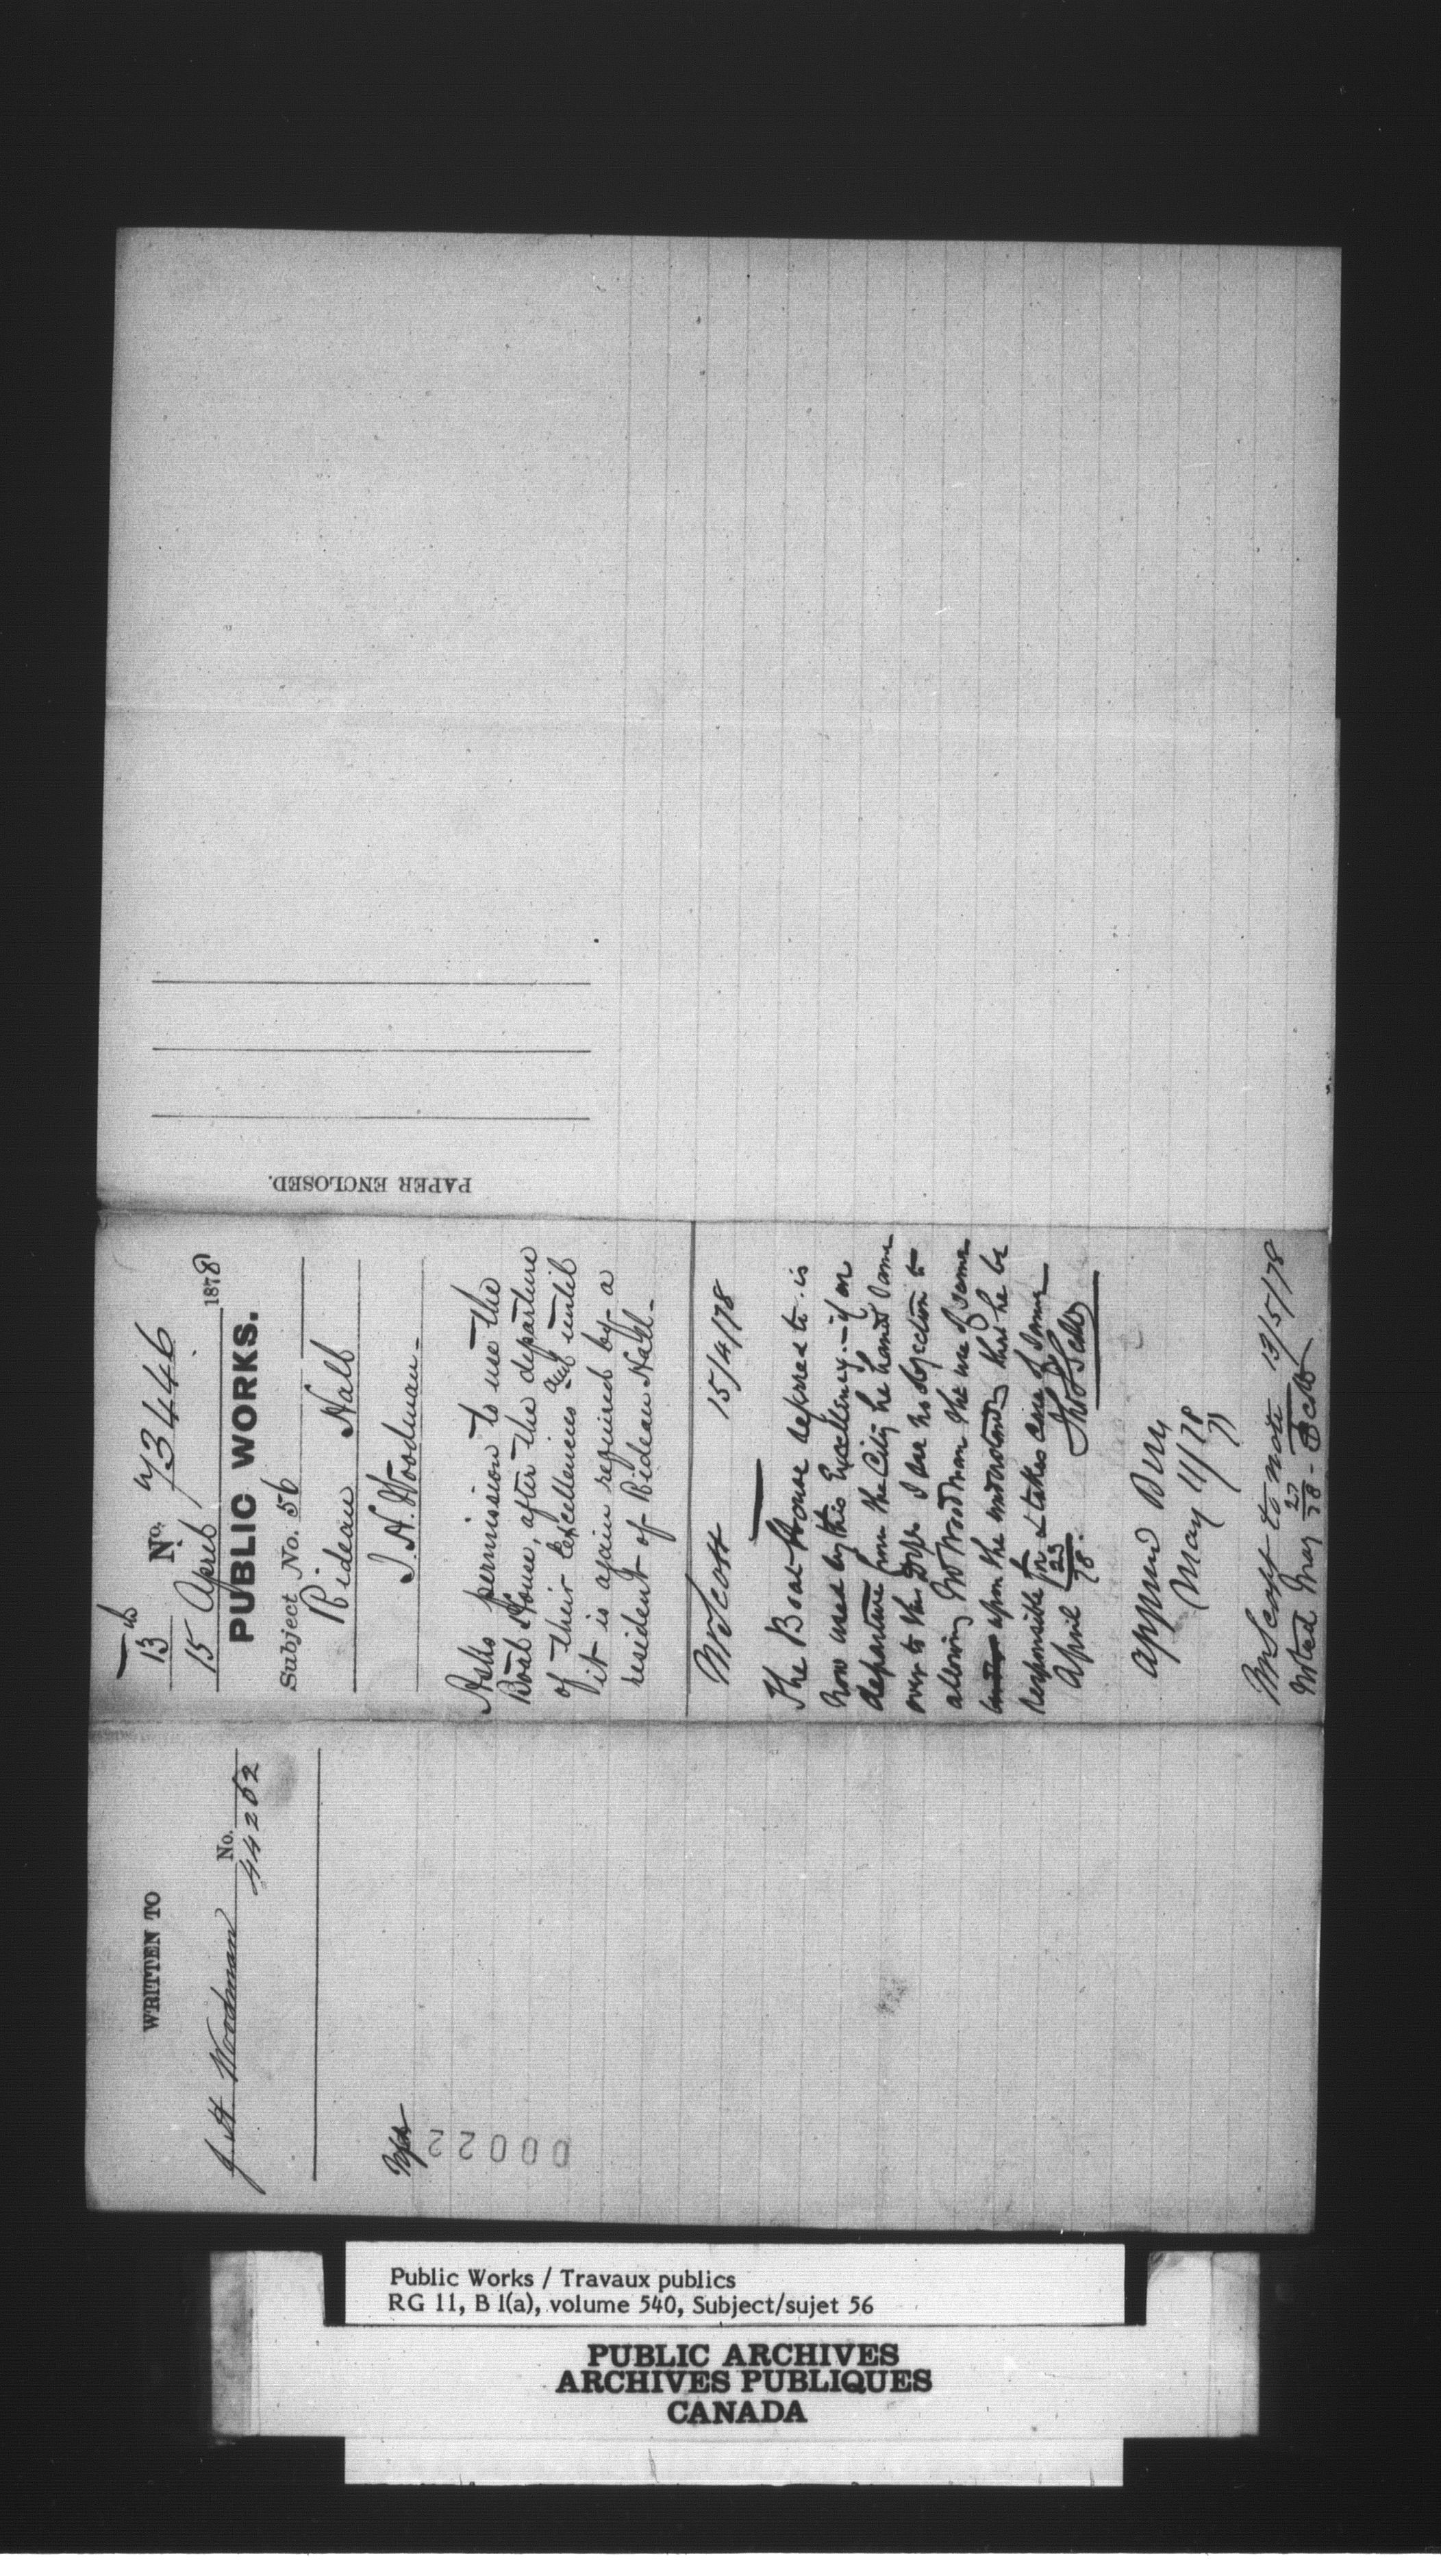 WRITTEN TO
No.
J H Woodman 44262
00022
13
15 April 1878
No. 73446
PUBLIC WORKS.
Subject No. 56
Rideau Hall
J. H. Woodman.
Asks permission to use the
Boat House, after the departure
of their Excellencies and until
it is again required by a
resident of Rideau Hall.
Mr Scott 15/4/78
The Boat House referred to is
now used by His Excellency. — if on
departure from the City he hands same
over to this Dept I see no objection to
allowing Mr Woodman the use of same
upon the understanding that he be
responsible for & takes care of same
April 23/78. Thos S Scott
Approved
May 11/78
Mr Scott to note 13/5/78
Noted May 27/78 - Scott
PAPER ENCLOSED.
Public Works / Travaux publics
RG 11, B 1(a), volume 540, Subject/sujet 56
PUBLIC ARCHIVES
ARCHIVES PUBLIQUES
CANADA